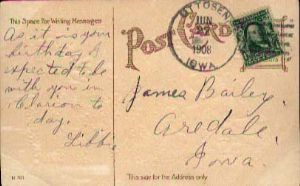 This Space For Writing Messages
As it is your
birthday I
expected to be
with you in
Clarion to
day.
Libbie
POST CARD
OTTOSEN
JUN
1908
IOWA
James Bailey,
Aredale,
Iowa.
This side for the Address only